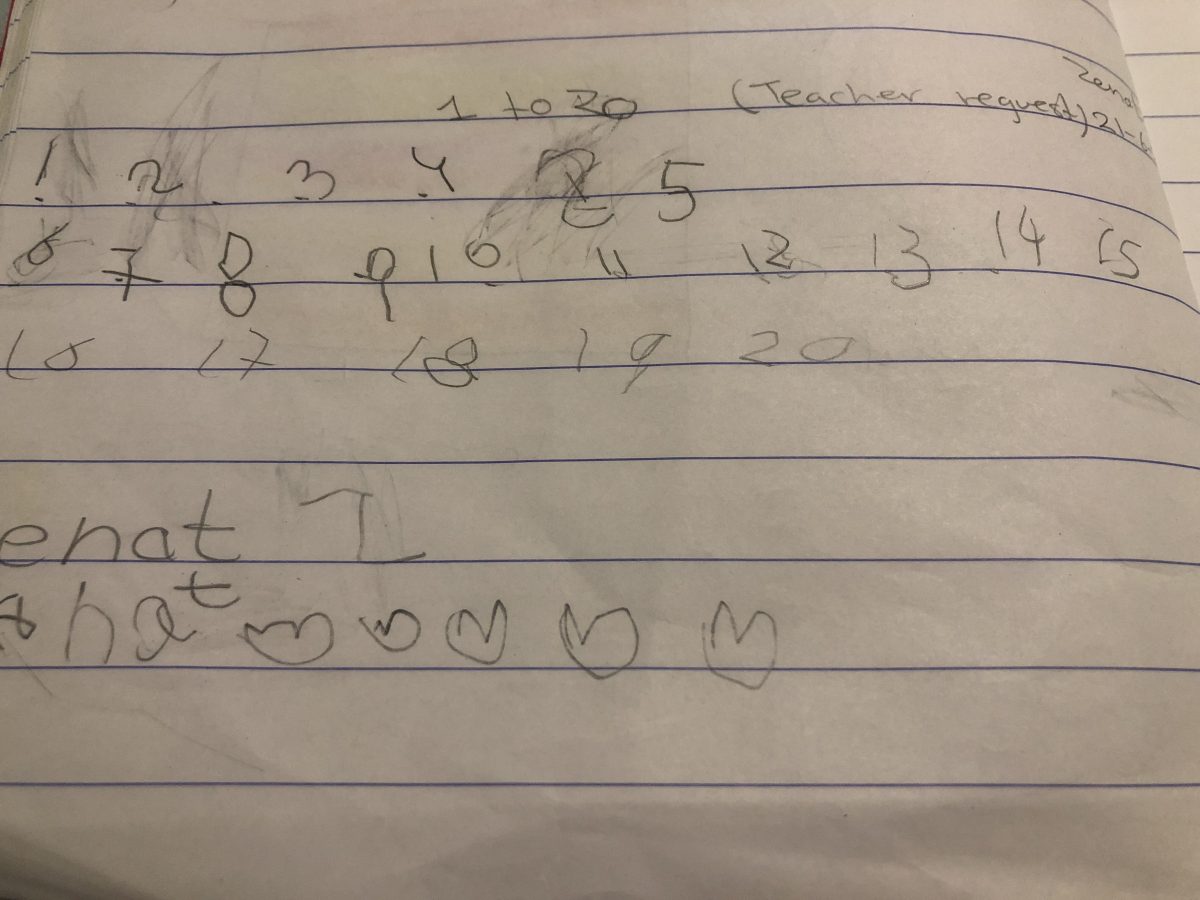 1 to 20 (Teacher request)
1 2 3 4 5
6 7 8 9 10 11 12 13 14 15
16 17 18 19 20
enat I
hat